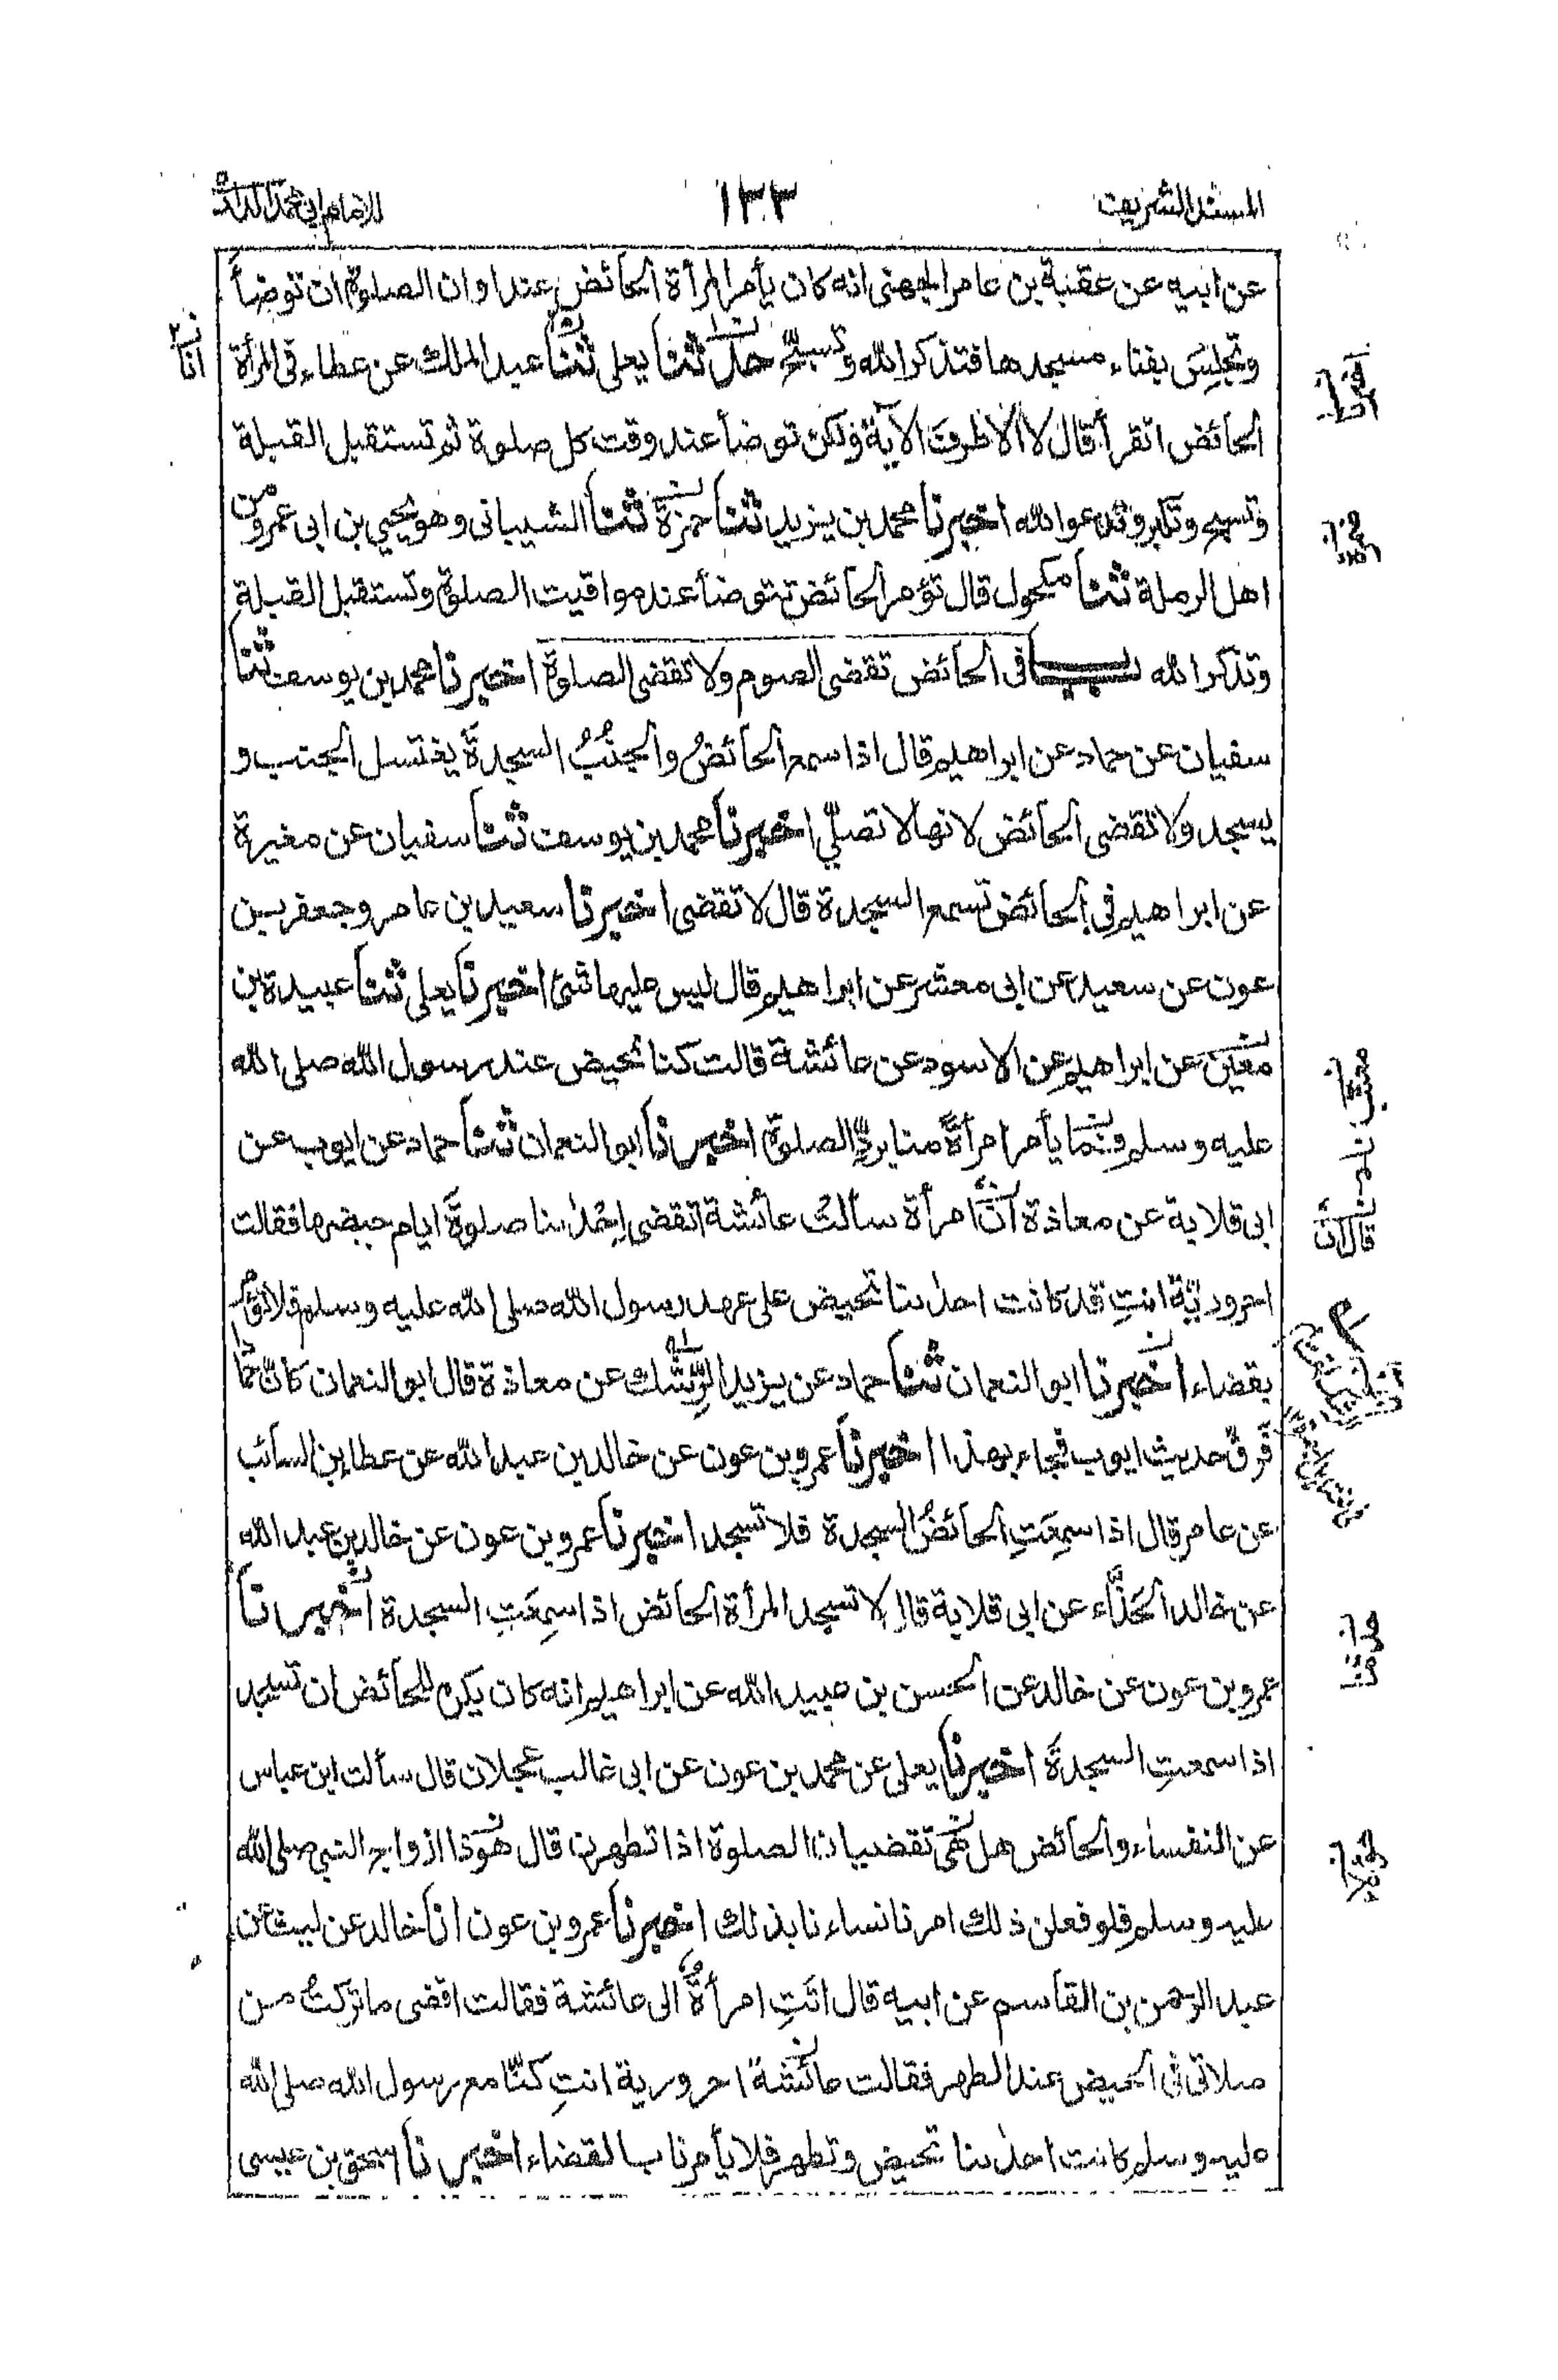 المسند الشريف ١٣٣ للامام ابي محمد الدارمي
عن ابيه عن عقبة بن عامر الجهني انه كان يأمر المرأة الحائض عند اوان الصلوة ان توضأ
وتجلس بفناء مسجدها فتذكر الله وتسبح حدثنا يعلى ثنا عبد الملك عن عطاء في المرأة
الحائض اتقرأ قال لا الا طرف الآية ولكن توضأ عند وقت كل صلوة ثم تستقبل القبلة
وتسبح وتكبر وتدعو الله اخبرنا محمد بن يزيد ثنا ضمرة ثنا الشيباني وهو يحيى بن ابي عمرو من
اهل الرملة ثنا مكحول قال تؤمر الحائض تتوضأ عند مواقيت الصلوة وتستقبل القبلة
وتذكر الله باب في الحائض تقضي الصوم ولا تقضي الصلوة اخبرنا محمد بن يوسف ثنا
سفيان عن حماد عن ابراهيم قال اذا سمع الحائضُ والجنُبُ السجدةَ يغتسل الجنب و
يسجد ولا تقضي الحائض لانها لا تصلّي اخبرنا محمد بن يوسف ثنا سفيان عن مغيرة
عن ابراهيم في الحائض تسمع السجدة قال لا تقضي اخبرنا سعيد بن عامر وجعفر بن
عون عن سعيد عن ابي معشر عن ابراهيم قال ليس عليها شئ اخبرنا يعلى ثنا عبيدة بن
معين عن ابراهيم عن الاسود عن عائشة قالت كنا نحيض عند رسول الله صلى الله
عليه وسلم فما يأمر امرأةً منا بردّ الصلوة اخبرنا ابو النعمان ثنا حماد عن ايوب عن
ابي قلابة عن معاذة انّ امرأة سألت عائشة اتقضي احدٰىنا صلوةَ ايام حيضها فقالت
احروريّة انتِ قد كانت احدٰىنا تحيض على عهد رسول الله صلى الله عليه وسلم فلا تؤمر
بقضاء اخبرنا ابو النعمان ثنا حماد عن يزيد الرِّشك عن معاذة قال ابو النعمان كانّ حمادا
فَرِقَ حديث ايوب فجاء بهذا اخبرنا عمرو بن عون عن خالد بن عبد الله عن عطاء بن السائب
عن عامر قال اذا سمِعَتِ الحائضُ السجدة فلا تسجد اخبرنا عمرو بن عون عن خالد بن عبد الله
عن خالد الحَذّاء عن ابي قلابة قال لا تسجد المرأة الحائض اذا سمِعَتِ السجدة اخبرنا
عمرو بن عون عن خالد عن الحسن بن عبيد الله عن ابراهيم انه كان يكره للحائض ان تسجد
اذا سمعتِ السجدةَ اخبرنا يعلى عن محمد بن عون عن ابي غالب عجلان قال سألت ابن عباس
عن النفساء والحائض هل تقضيان الصلوة اذا تطهرن قال هوذا ازواج النبي صلى الله
عليه وسلم فلو فعلن ذلك امرنا نساءنا بذلك اخبرنا عمرو بن عون انا خالد عن ليث عن
عبد الرحمن بن القاسم عن ابيه قال اتَتِ امرأةٌ الى عائشة فقالت اقضي ما تركتُ من
صلاتي في الحيض عند الطهر فقالت عائشةُ احرورية انتِ كنّا مع رسول الله صلى الله
عليه وسلم كانت احدٰىنا تحيض وتطهر فلا يأمرنا بالقضاء اخبرنا اسحق بن عيسى
انا